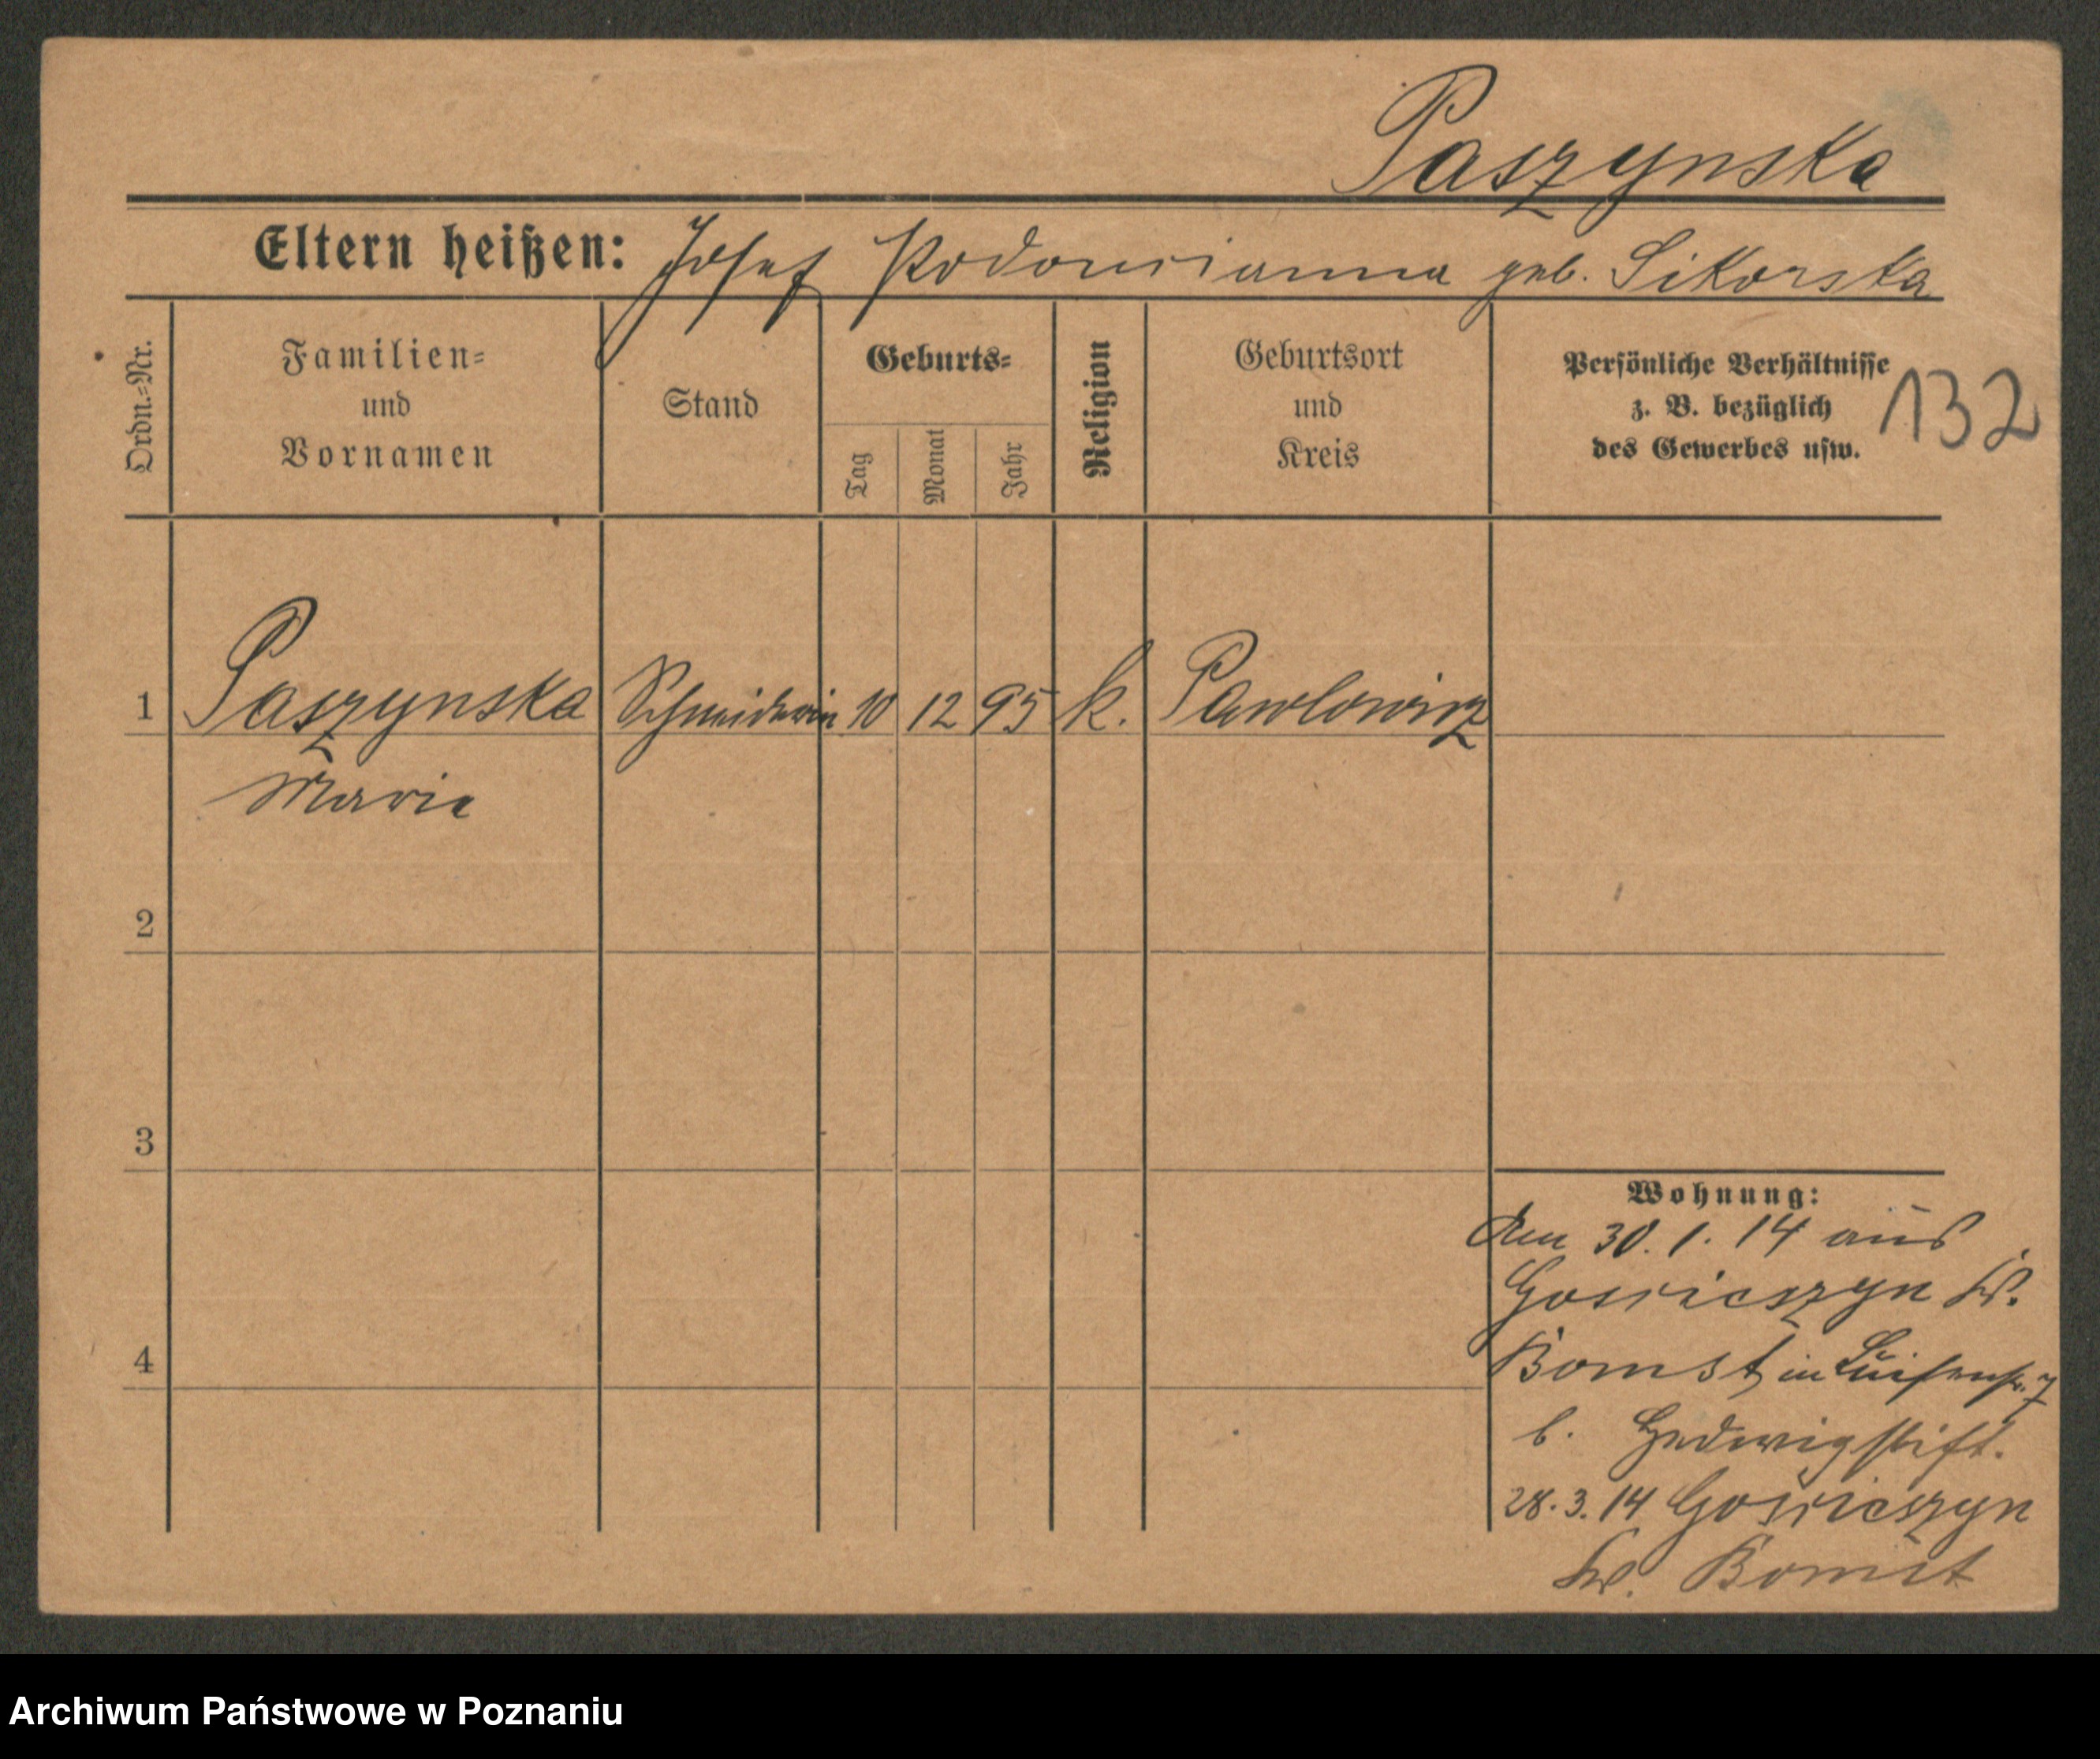 Paszynska
Eltern heißen: Josef geb. Sikorska
Ordn.-Nr.
Familien-
und
Vornamen
Stand
Geburts-
Tag
Monat
Jahr
Religion
Geburtsort
und
Kreis
Persönliche Verhältnisse
z. B. bezüglich
des Gewerbes usw.
132
1 Paszynska Schneiderin 10 12 95 k. Pawlowitz
Marie
2
3
4
Wohnung:
Am 30. 1. 14 aus
Goscieszyn Kr.
Bomst in Luisenstr. 7
b. Hedwigstift.
28. 3. 14 Goscieszyn
Kr. Bomst
Archiwum Państwowe w Poznaniu